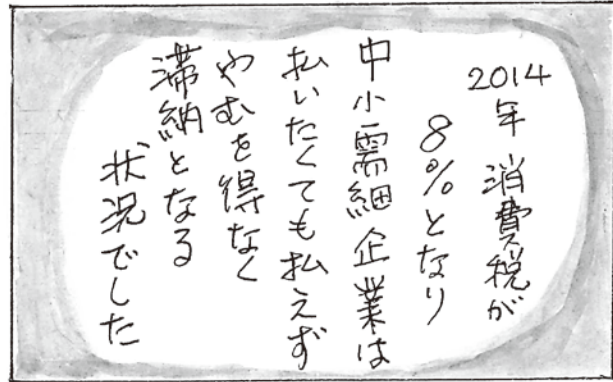 2014年 消費税が
8%となり
中小需細企業は
払いたくても払えず
やむを得なく
滞納となる
状況でした